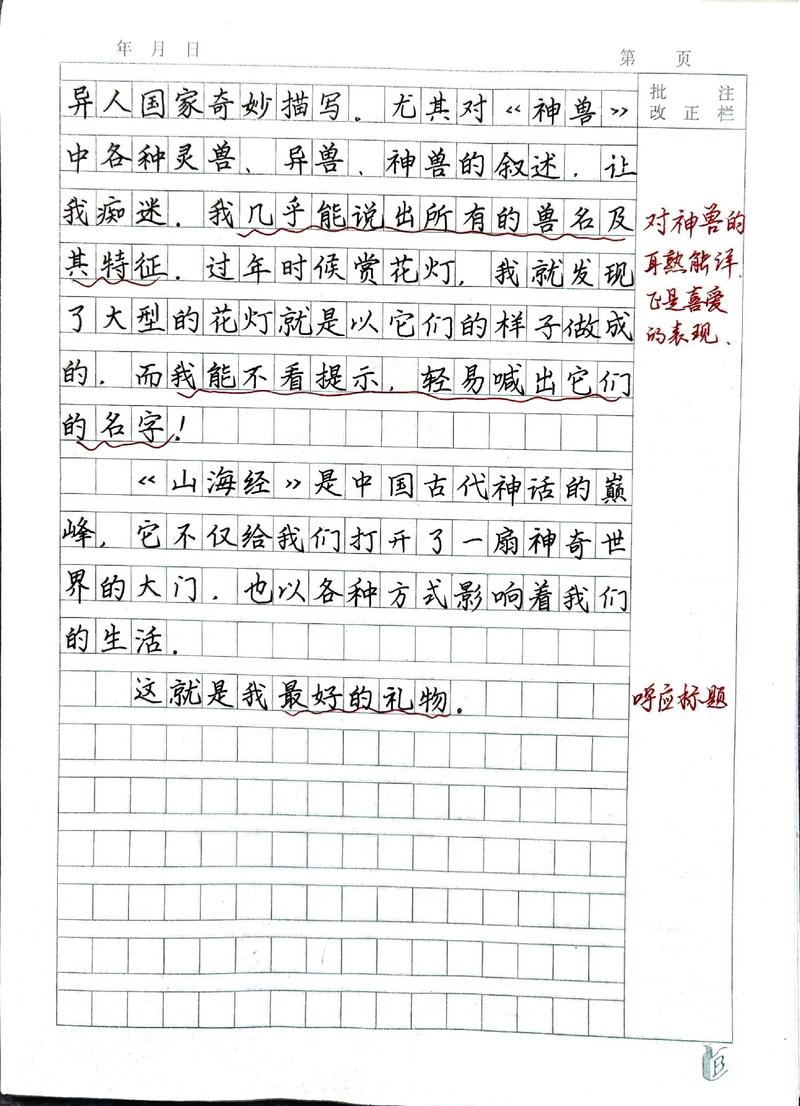 年 月 日
第 页
批 注
改 正 栏
异人国家奇妙描写。尤其对《神兽》
中各种灵兽、异兽、神兽的叙述，让
我痴迷。我几乎能说出所有的兽名及
其特征。过年时候赏花灯，我就发现
了大型的花灯就是以它们的样子做成
的，而我能不看提示，轻易喊出它们
的名字！
《山海经》是中国古代神话的巅
峰，它不仅给我们打开了一扇神奇世
界的大门，也以各种方式影响着我们
的生活。
这就是我最好的礼物。
对神兽的
耳熟能详
飞是喜爱
的表现、
呼应标题